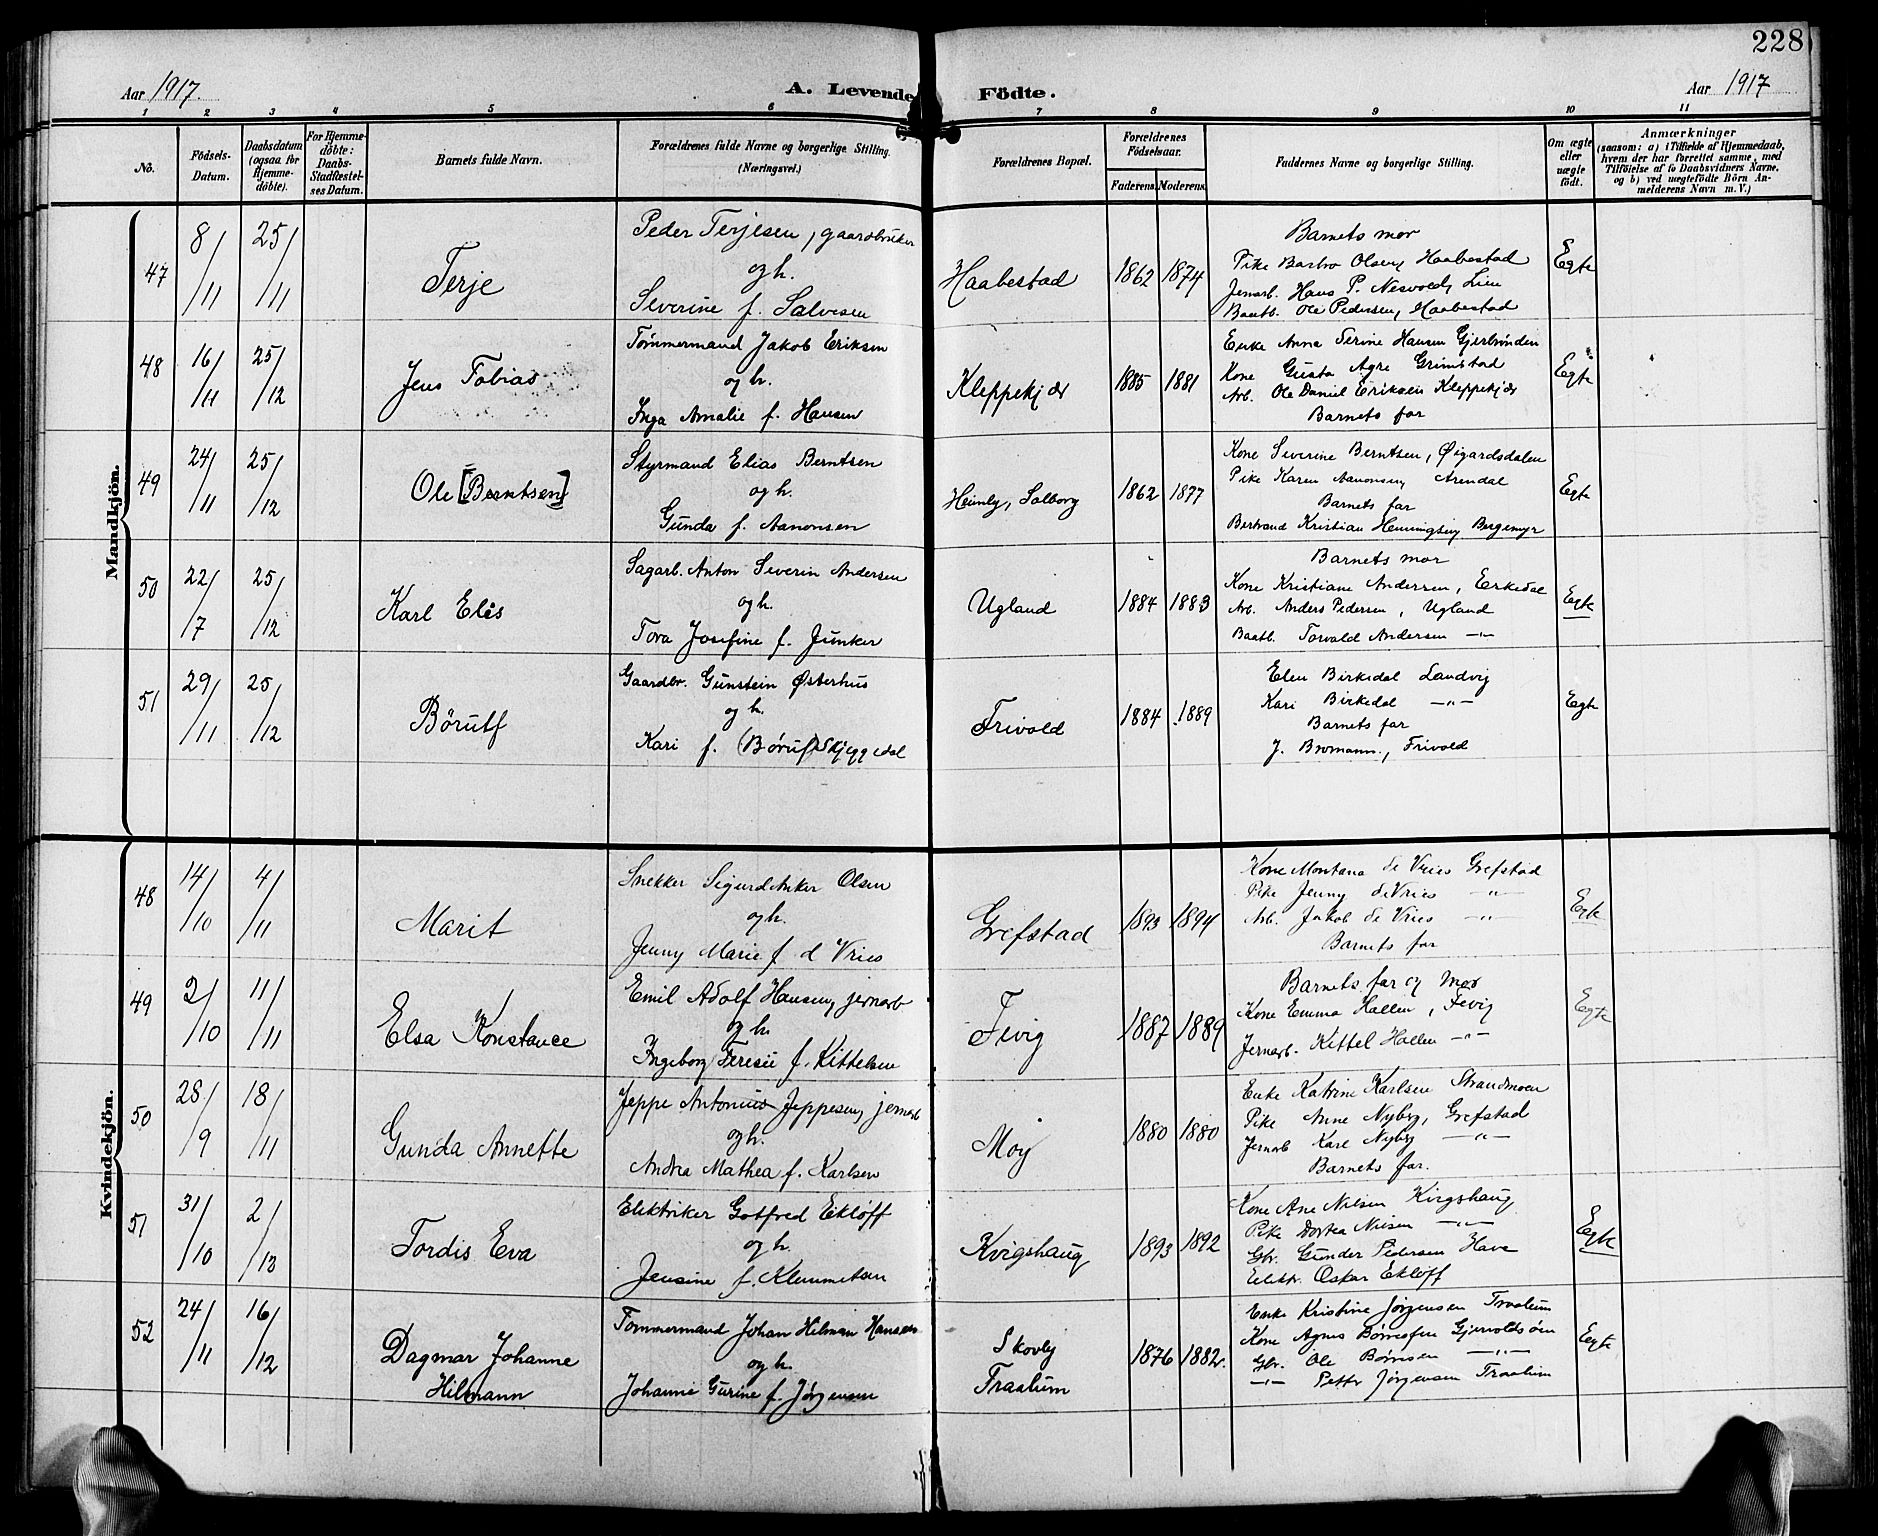 228
Aar 1917.
A. Levende Födte.
Aar 1917
1 2 3 4 5 6 7 8 9 10 11
No.
Födsels-Datum.
Daabsdatum (ogsaa for Hjemmedöbte).
For Hjemmedöbte: Daabs-Stadfæstelses Datum.
Barnets fulde Navn.
Forældrenes fulde Navne og borgerlige Stilling. (Næringsvei.)
Forældrenes Bopæl.
Forældrenes Fødselsaar.
Faderens. Moderens.
Faddernes Navne og borgerlige Stilling.
Om ægte eller uægte født.
Anmærkninger
(saasom: a) i Tilfælde af Hjemmedaab, hvem der har forrettet samme, med Tilföielse af to Daabsvidners Navne, og b) ved uægtefödte Börn Anmelderens Navn m. V.)
Mandkjön.
47
8/11
25/11
Terje
Peder Terjesen, gaardbruker
og h.
Severine f. Salvesen
Haabestad
1862 1874
Barnets mor
Pike Barbro Olsen, Haabestad
Jernarb. Hans P. Nesvold, Lien
Baatb. Ole Pedersen, Haabestad
Egte
48
16/11
25/12
Jens Tobias
Tømmermand Jakob Eriksen
og h.
Inga Amalie f. Hansen
Kleppekjær
1885 1881
Enke Anna Serine Hansen
Kone Gusta Agre Grimstad
Arb. Ole Daniel Eriksen Kleppekjær
Barnets far
Egte
49
24/11
25/12
Ole [Berntsen]
Styrmand Elias Berntsen
og h.
Gunda f. Aanonsen
Heimly, Solborg
1862 1877
Kone Severine Berntsen, Øigardsdalen
Pike Karen Aanonsen, Arendal
Barnets far
Bertrand Kristian Henningsen, Bergemyr
Egte
50
22/7
25/12
Karl Elis
Sagarb. Anton Severin Andersen
og h.
Tora Josefine f. Junker
Ugland
1884 1883
Barnets mor
Kone Kristiane Andersen, Eskedal
Arb. Anders Pedersen, Ugland
Baatb. Torvald Andersen -"-
Egte
51
29/11
25/12
Börutf
Gaardbr. Gunstein Østerhus
og h.
Kari f. (Børuf) Skjeggedal
Frivold
1884 1889
Elen Birkedal Landvig
Kari Birkedal -"-
Barnets far
J. Bromann, Frivold
Egte
Kvindekjön.
48
14/10
4/11
Marit
Snekker Sigurd Anker Olsen
og h.
Jenny Marie f. d Vries
Grefstad
1893 1894
Kone Montana de Vries Grefstad
Pike Jenny de Vries -"-
Arb. Jakob de Vries -"-
Barnets far
Egte
49
2/10
11/11
Elsa Konstance
Emil Adolf Hansen, jernarb
og h.
Ingeborg Teresie f. Kittelsen
Fevig
1887 1889
Barnets far og Mor
Kone Emma Hallen, Fevig
Jernarb. Kittel Hallen -"-
Egte
50
28/9
18/11
Gunda Annette
Jeppe Antonius Jeppesen, jernarb
og h.
Andrea Mathea f. Karlsen
Moy
1880 1880
Enke Katrine Karlsen Strandmoen
Pike Anne Nyberg, Grefstad
Jernarb Karl Nyberg -"-
Barnets far.
51
31/10
2/12
Tordis Eva
Elektriker Gotfred Ekløff
og h.
Jensine f. Klemmetsen
Kvigshaug
1893 1892
Kone Ane Nilsen Kvigshaug
Pike Dortea Nilsen -"-
Gbr. Gunder Pedersen Have
Elektr. Oskar Ekløff
Egte
52
24/11
16/12
Dagmar Johanne
Hilmann
Tømmermand Johan Hilman Hansen
og h.
Johanne Gurine f. Jørgensen
Skovly
Traalum
1876 1882.
Enke Kristine Jørgensen Traalum
Kone Agnes Børresen Gjervoldsøen
Gbr. Ole Børresen -"-
-"- Petter Jørgensen Traalum
Egte